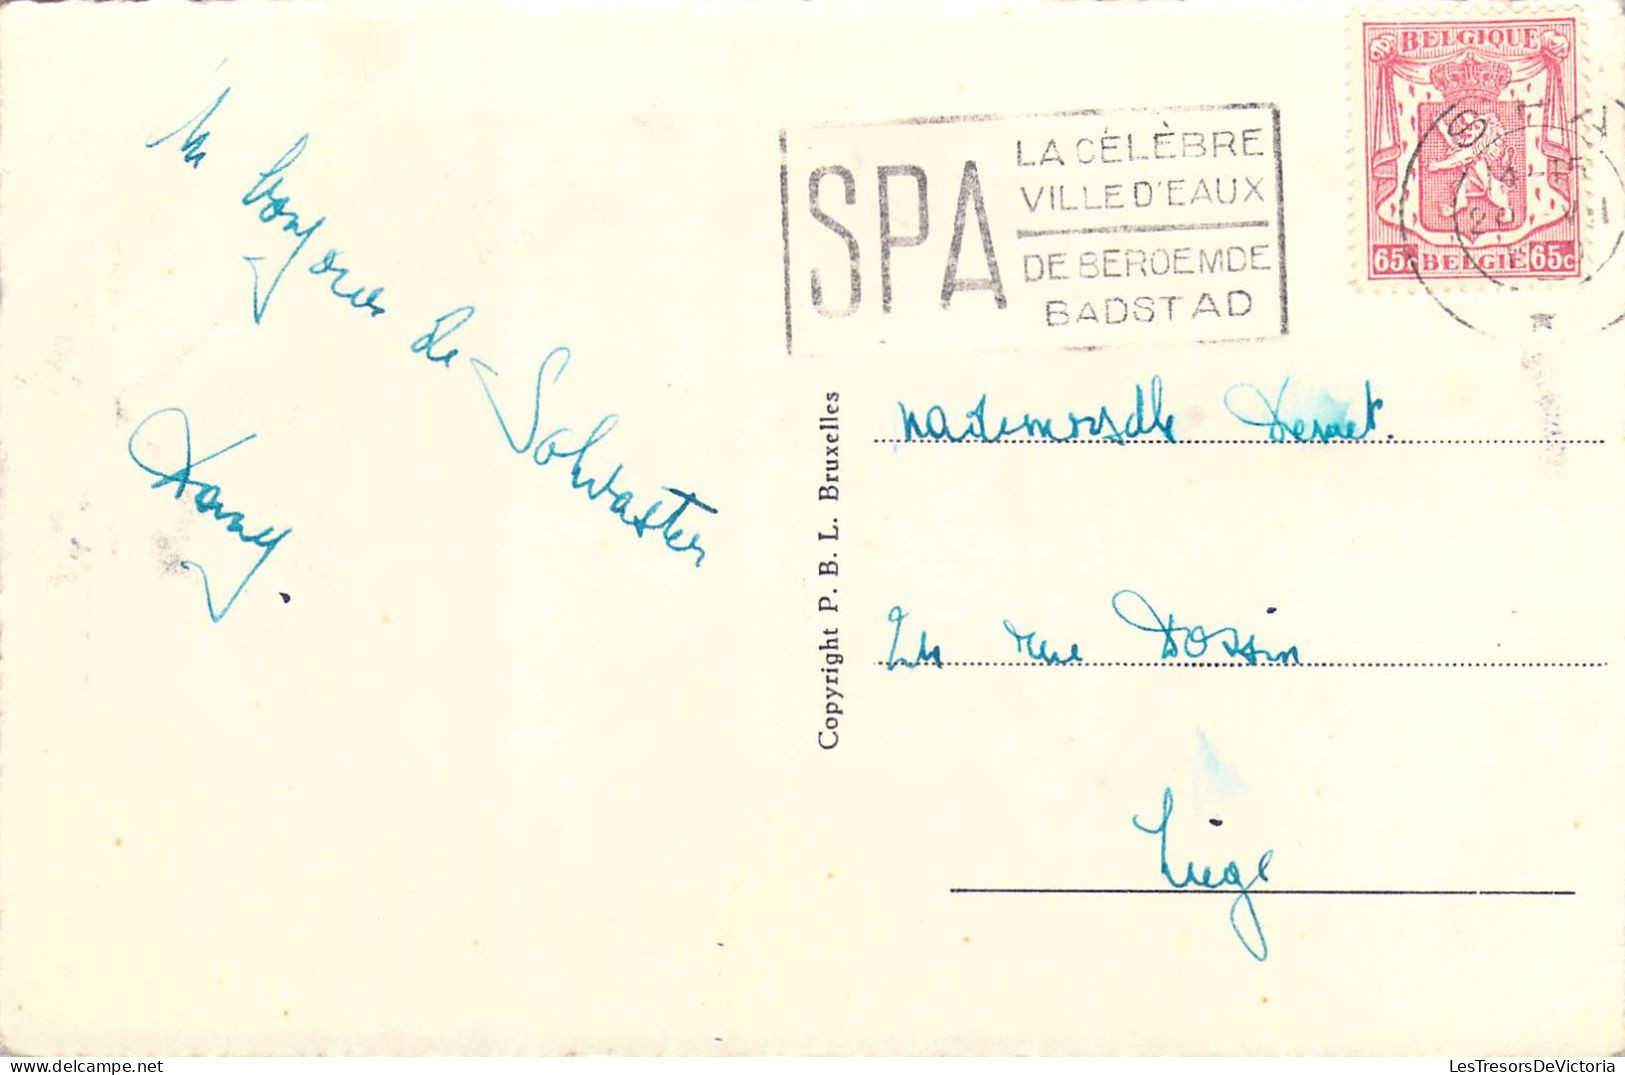 Un bonjour de
Solwaster
Dany.
SPA
LA CÉLÈBRE
VILLE D'EAUX
DE BEROEMDE
BADSTAD
BELGIQUE
65c BELGIË 65c
Copyright P. B. L. Bruxelles
Mademoiselle
rue Dossin
Liège
LesTresorsDeVictoria